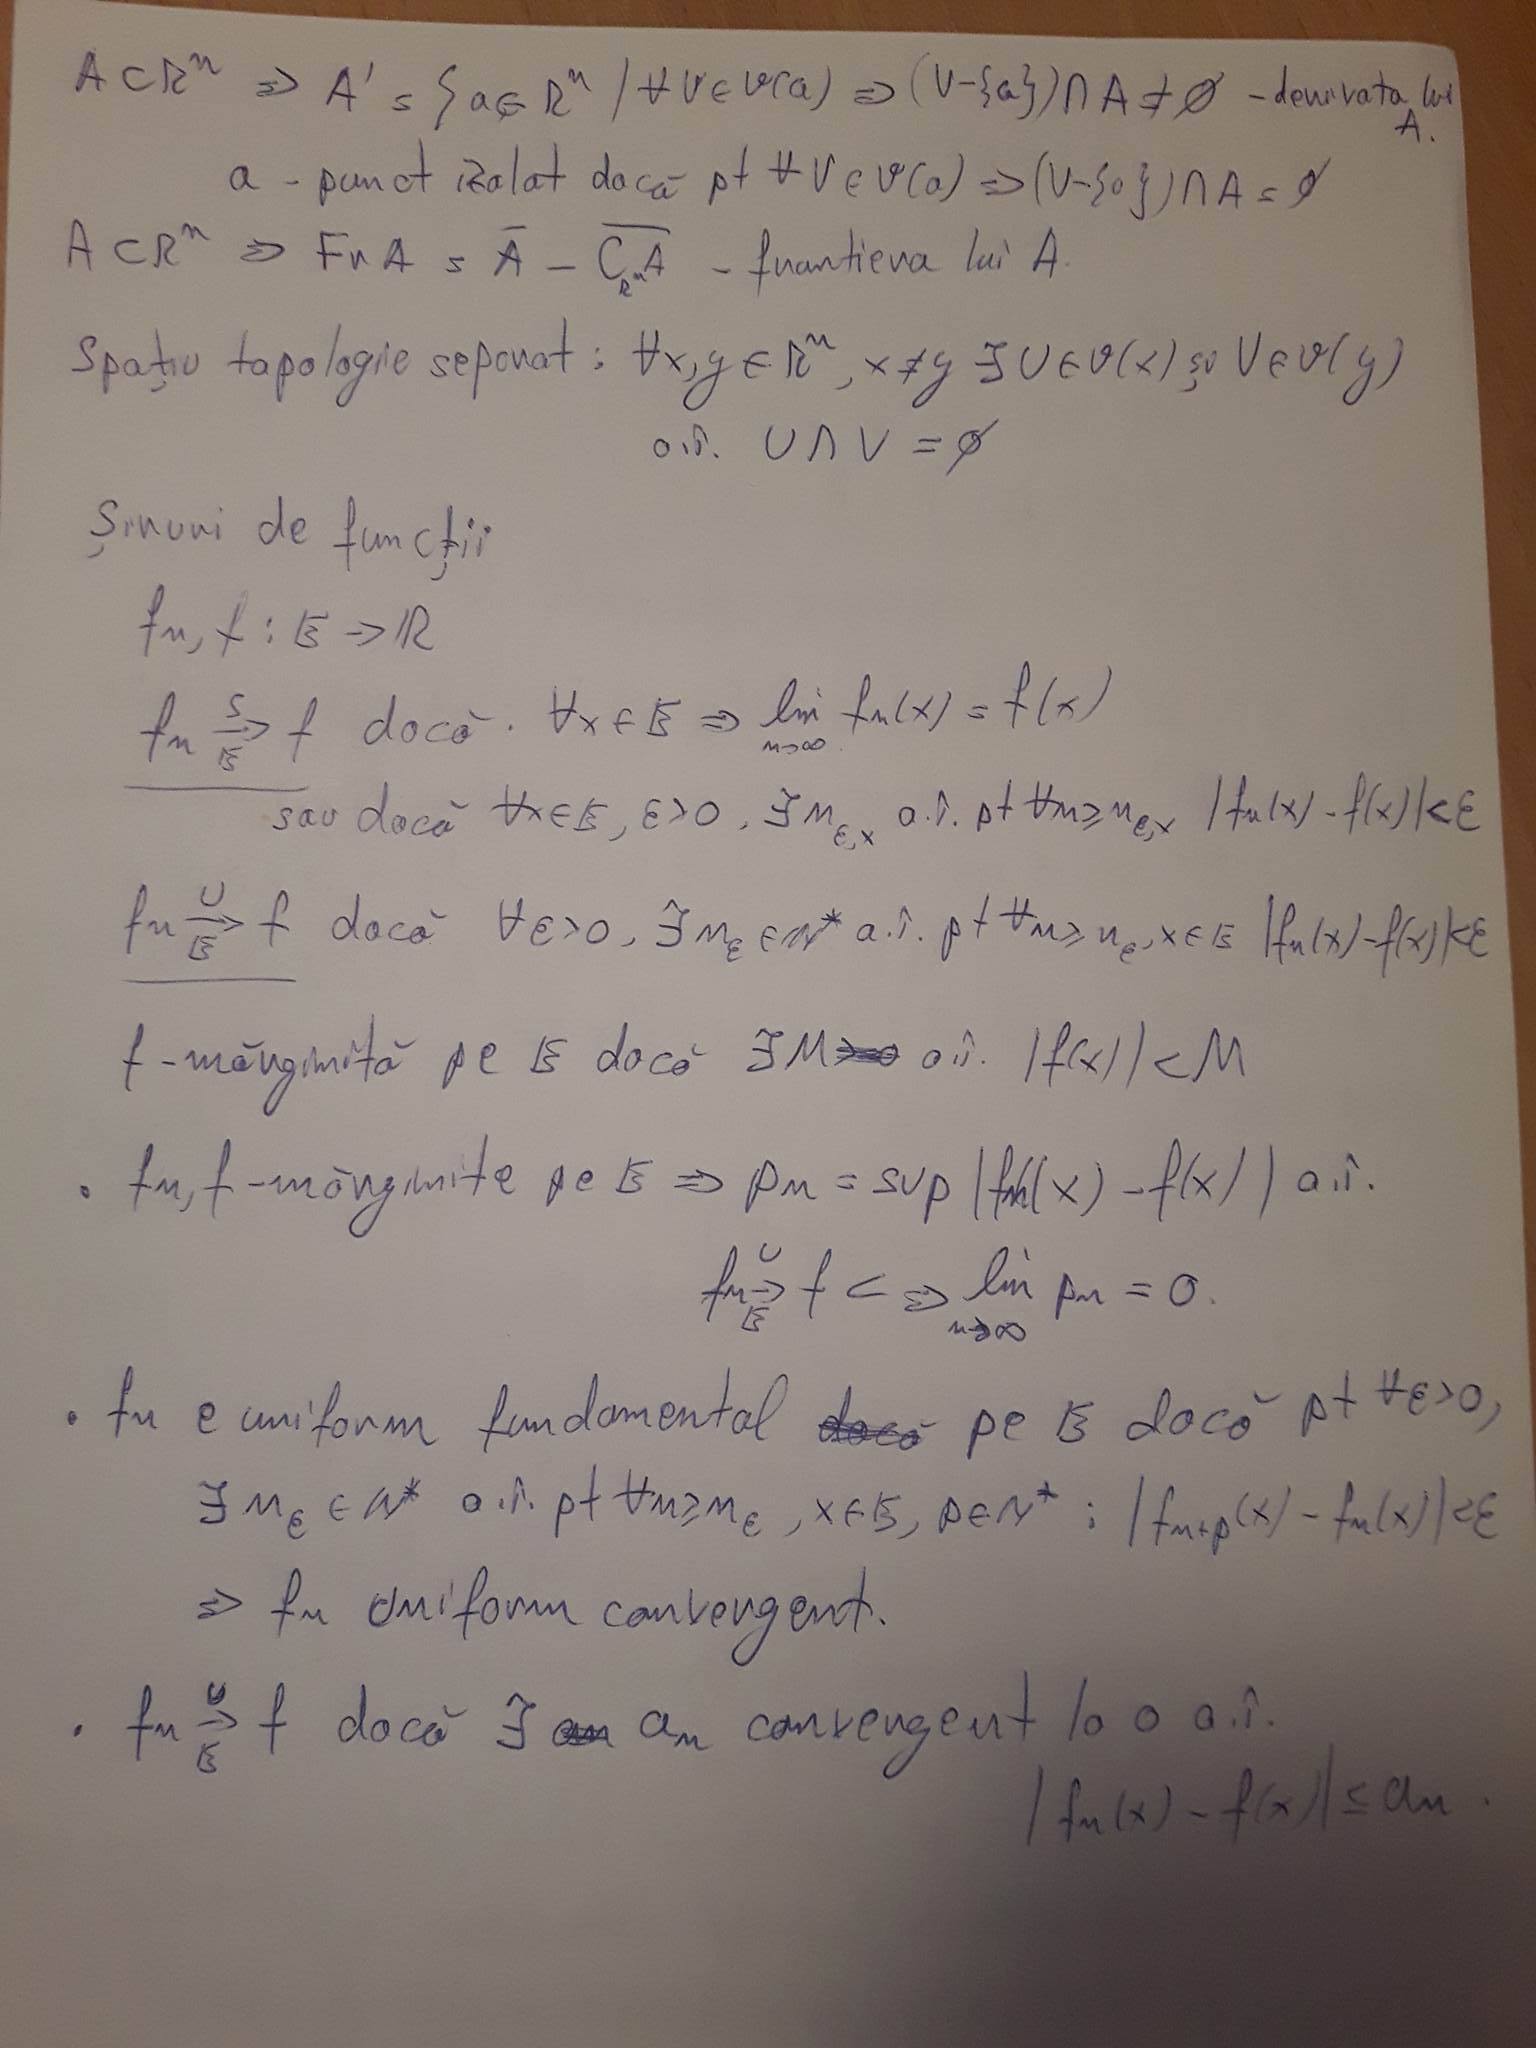 A ⊂ ℝⁿ ⇒ A' = {a ∈ ℝⁿ / ∀V ∈ 𝒱(a) ⇒ (V-{a}) ∩ A ≠ ∅ - derivata lui A.
a - punct izolat dacă pt ∀V ∈ 𝒱(a) ⇒ (V-{a}) ∩ A = ∅
A ⊂ ℝⁿ ⇒ Fr A = Ā - \overline{C_{ℝⁿ}A} - frontiera lui A.
Spațiu topologic separat: ∀x,y ∈ ℝⁿ, x≠y ∃ U ∈ 𝒱(x) și V ∈ 𝒱(y)
a.î. U ∩ V = ∅
Șiruri de funcții
fn, f : E → ℝ
fn \xrightarrow[E]{S} f dacă. ∀x ∈ E ⇒ lim_{n→∞} fn(x) = f(x)
sau dacă ∀x ∈ E, ε>0, ∃ n_{ε,x} a.î. pt ∀n ≥ n_{ε,x} |fn(x) - f(x)| < ε
fn \xrightarrow[E]{U} f dacă ∀ε>0, ∃ n_ε ∈ ℕ* a.î. pt ∀n ≥ n_ε, x ∈ E |fn(x) - f(x)| < ε
f - mărginită pe E dacă ∃ M a.î. |f(x)| < M
• fn, f - mărginite pe E ⇒ pn = sup |fn(x) - f(x)| a.î.
fn \xrightarrow[E]{U} f <=> lim_{n→∞} pn = 0.
• fn e uniform fundamental pe E dacă pt ∀ε>0,
∃ n_ε ∈ ℕ* a.î. pt ∀n ≥ n_ε, x ∈ E, p ∈ ℕ* : |f_{n+p}(x) - fn(x)| < ε
⇒ fn uniform convergent.
• fn \xrightarrow[E]{U} f dacă ∃ an convergent la 0 a.î.
|fn(x) - f(x)| ≤ an.